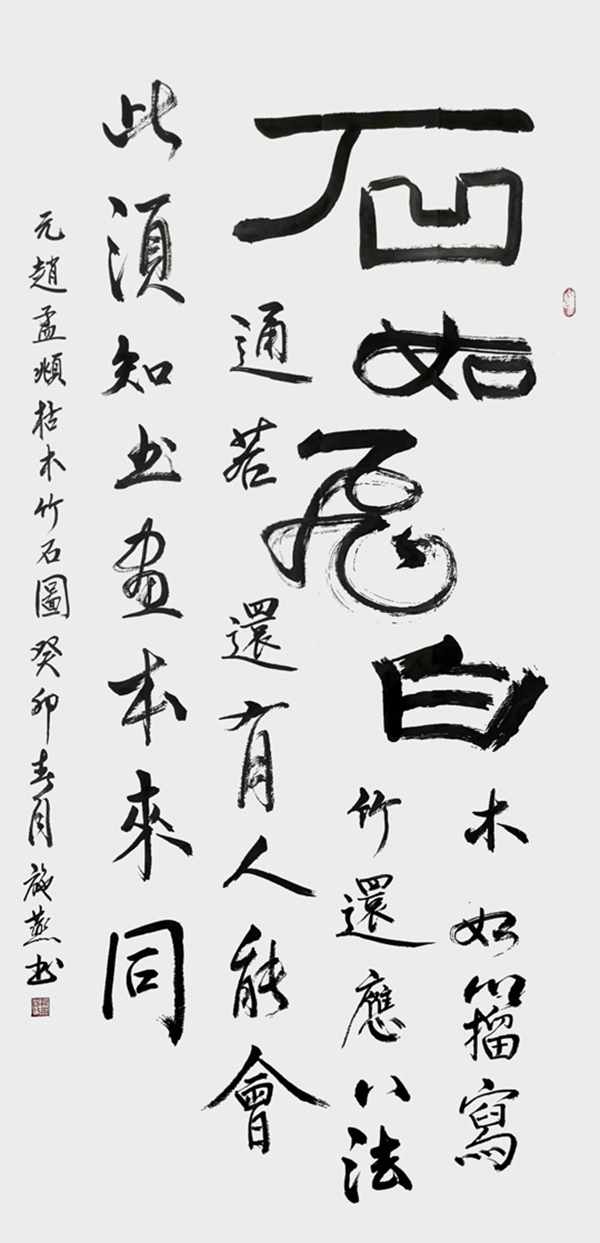 石如飛白
木如籀寫
竹還應八法
通若還有人能會
此須知書畫本來同
元趙孟頫枯木竹石圖癸卯春月施燕書